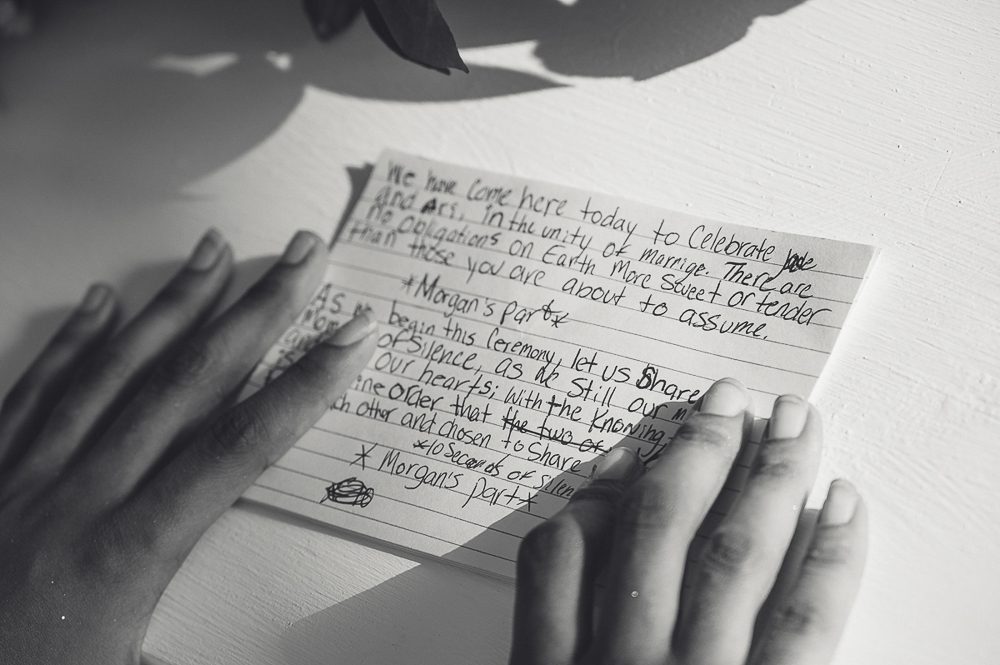 We have come here today to Celebrate Jade
and Ari, in the unity of marrige. There are
no obligations on Earth more sweet or tender
than those you are about to assume.
*Morgan's part*
As we begin this Ceremony, let us Share
of silence, as we still our
our hearts; with the Knowing
order that the two of
other and chosen to Share
*10 Seconds of Silen
* Morgan's part*